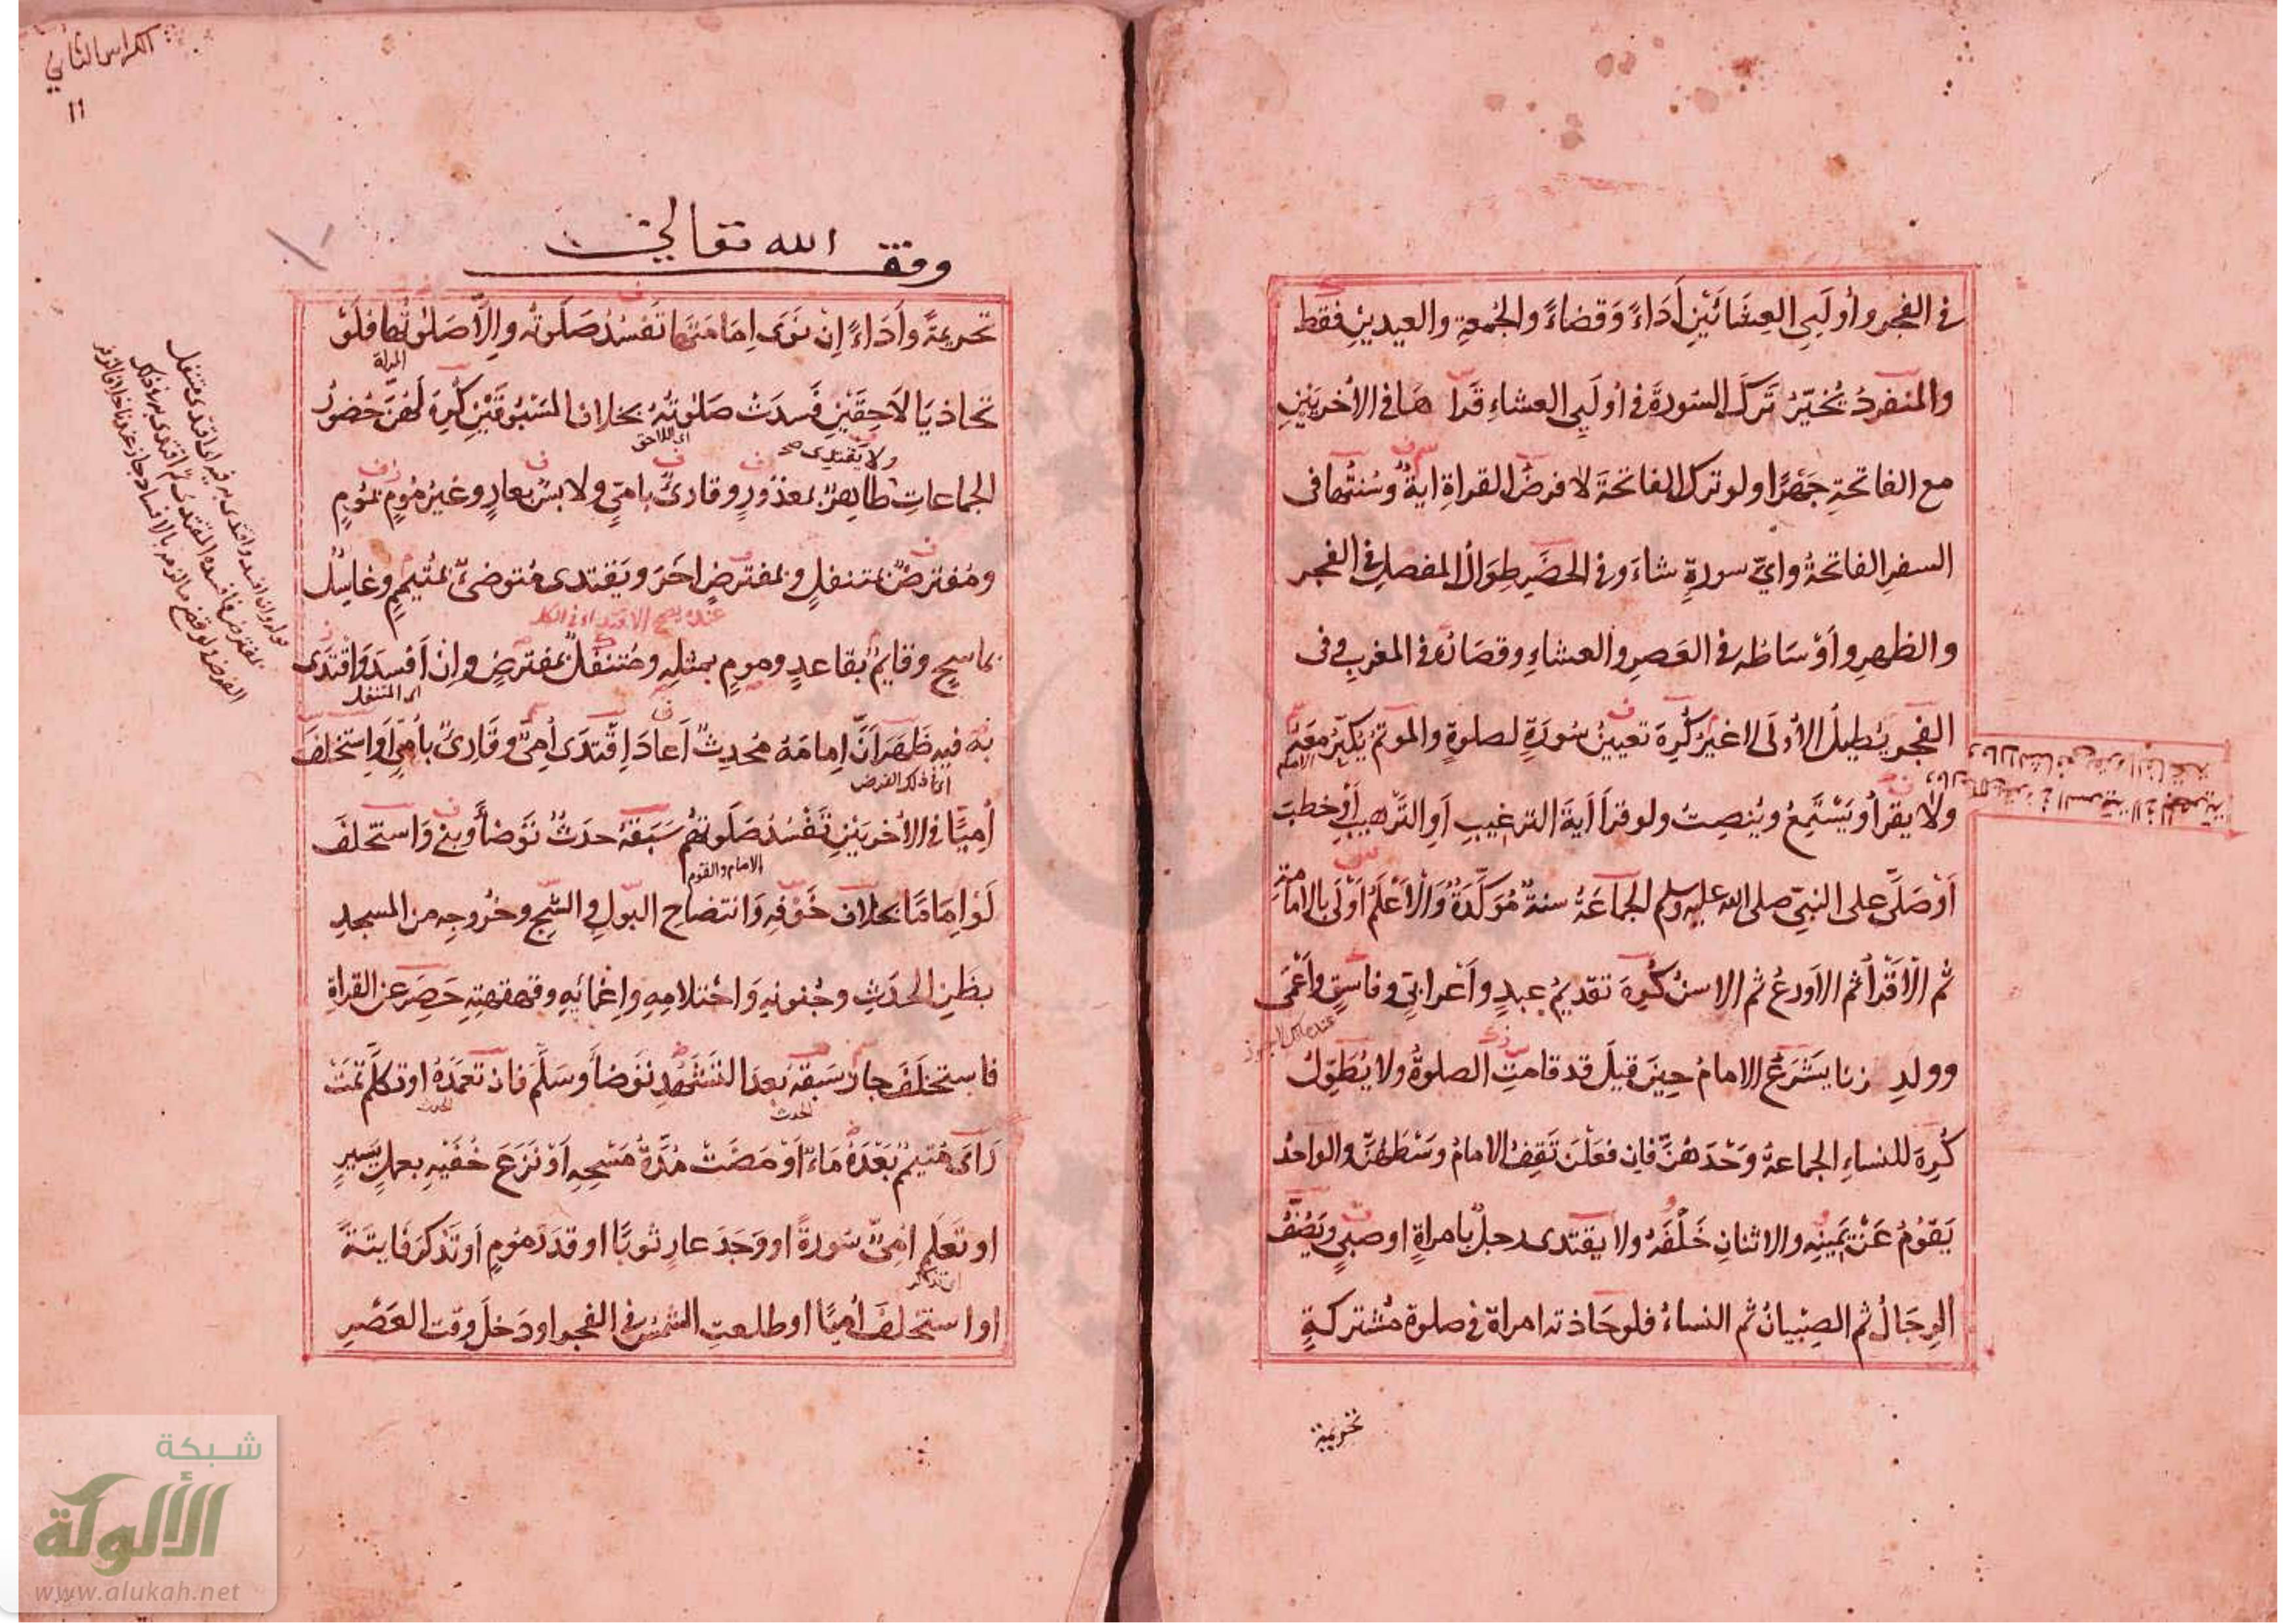 في الفجر وأُولَيي العِشَائَيْنِ أَدَاءً وَقضاءً والجُمعةِ والعيدينِ فقط
والمنفردُ يُخيّرُ تَركَ السّورةَ في اُولَيي العشاءِ قَرأ هَا في الأُخريَيْنِ
مع الفاتحةِ جَهْرًا ولو ترك الفاتحةَ لا فرضُ القراةِ ايةٌ وسُنتُها فى
السفرِ الفاتحةُ وايُّ سورةٍ شاءَ وفي الحضَرِ طِوَالُ المفصلِ في الفجر
والظهرِ وأَوْسَاطُه في العَصرِ والعشاءِ وقصَارُه في المغربِ وفى
الفَجرِ يُطيلُ الأُولَى لا غيرُ كُرِهَ تعيينُ سُورَةٍ لصلوةٍ والموتمُّ يكبّرُ مَعَهُ
الامام
ولا يقرأُ ويَسْتَمِعُ ويُنصِتُ ولو قرأَ أيةَ الترغيبِ أَوِ التَرْهيبِ أَوْ خطبَ
أَوْ صَلَّى على النبيّ صلى الله عليه وسلم الجماعَةُ سنةٌ مُوَكَّدَةٌ وَالأَعْلَمُ اَوْلَى بالامامةِ
ثم الأَقْرأُ ثم الاَورعُ ثم الاسنُّ كُرِهَ تقديمُ عبدٍ وأَعْرابيٍّ وفاسقٍ وأَعْمَى
وولدِ زنا يَشْرَعُ الامامُ حِينَ قِيلَ قد قامتِ الصلوةُ ولا يُطَوِّلُ
كُرِهَ للنساءِ الجماعةُ وَحْدَهُنَّ فانِ فَعَلْنَ تَقِفُ الامامُ وسْطَهُنَّ والواحدُ
يَقُومُ عَنْ يَمينِه والاثنانِ خَلْفَهُ ولا يقتدى رجلٌ بامراةٍ اوصبيٍّ ويَصُفُّ
الرِجَالُ ثم الصِبْيانُ ثم النساءُ فلو حَاذته امراة في صلوة مشتركةٍ
تحريمة
الكراس الثاني
11
وقف الله تعالى
تحريمةً وأَدَاءً اِنْ نَوَى اِمَامَتَها تَفْسُدُ صَلَوتُه والاَّ صَلوتُها فلَوْ
المراة
تحاذيَا لاَحِقَيْنِ فَسدَتْ صَلوتُهُ بخلاف المَسْبُوقَيْنِ كُرِهَ لَهُنَّ حُضورُ
اى اللاحق
ولا يَقتدى صح
الجماعاتِ طاهرٌ بمعذُورٍ وقارئٌ بامّيٍّ ولابسٌ بعارٍ وغيرُ مُومٍ بمُومٍ
ومُفترضٌ بمتنفلٍ وبمفترضٍ اخَرَ ويَقتدى متوضئٌ بمُتيمِمٍ وغاسلٌ
عنده يصح الاقتداء في الكل
بماسحٍ وقايمٌ بقاعدٍ ومومٍ بمثلِه ومُتنفلٌ بمفترضٍ وانْ أَفسدَ وَاقْتدَى
اى المتنفل
به فيهِ ظَهَرَ اَنَّ اِمامَهُ مُحدِثٌ اَعَادَ اِقْتدَى اُمِيٌّ وقَارِئٌ بأُمّيٍّ أَواسْتَخلفَ
اى فى ذلك الفرض
أُمِيًّا فى الأُخريَيْنِ تَفْسُدُ صَلَوتهُم سَبَقهُ حدَثٌ تَوَضأَ وبنى وَاستخلَفَ
الامام والقوم
لَوْ اِمَامًا بخلاف خَوْفِه وَانتضاح البولِ والشَّجِّ وخُروجِه من المسجدِ
بظنِ الحدَثِ وجُنونِهِ وَاحْتلامِهِ واِغمائِهِ وقهقهتِهِ حَصِرَ عن القراةِ
فاستخلَفَ جازَ سَبَقهُ بعدَ التشَهُّدِ تَوَضأَ وسَلَّمَ فان تَعَمَّدَهُ اوتكلَّم تمتْ
الحدث
الحدث
رَأى مُتيمِّمٌ بَعْدَهُ مَاءً أَوْ مَضَتْ مُدَّةُ مَسْحِهِ أَوْ نَزَعَ خُفَيْهِ بعملٍ يَسيرٍ
او تَعَلم امِيٌّ سَورةً او وَجَدَ عارٍ ثوبًا او قدَرَ مُومٍ اَوتَذكرَ فَايتَةً
اى تذكر
او استخلَفَ اُمِيًّا او طلعتِ الشمسُ في الفجرِ اودَخلَ وقت العَصْرِ
شبكة
الألوكة
www.alukah.net